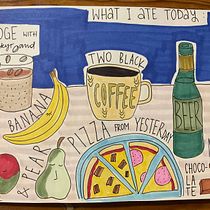 WHAT I ATE TODAY:
WITH
TWO BLACK
COFFEE
BEER
BANANA
& PEAR
PIZZA FROM YESTERDAY
CHOCO-
LA
TE